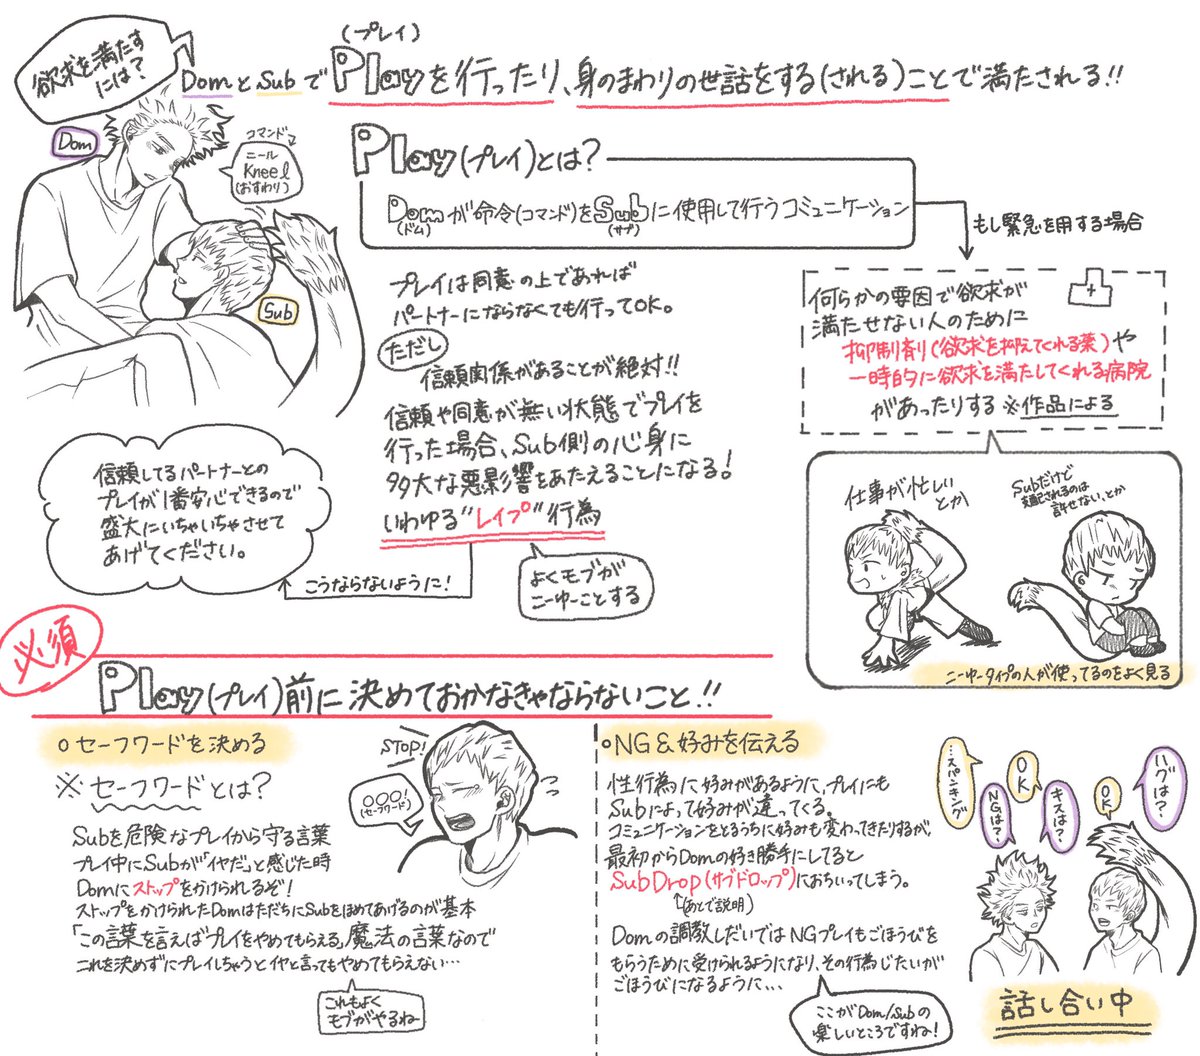 欲求を満たす
には?
(プレイ)
DomとSubでPlayを行ったり、身のまわりの世話をする(される)ことで満たされる!!
Dom
コマンド
ニール
Kneel
(おすわり)
Sub
Play(プレイ)とは?
Domが命令(コマンド)をSubに使用して行うコミュニケーション
(ドム)
(サブ)
もし緊急を用する場合
プレイは同意の上であれば
パートナーにならなくても行ってOK。
ただし
信頼関係があることが絶対!!
信頼や同意が無い状態でプレイを
行った場合、Sub側の心身に
多大な悪影響をあたえることになる!
いわゆる"レイプ"行為
よくモブが
ニーゆーことする
こうならないように!
信頼してるパートナーとの
プレイが1番安心できるので
盛大にいちゃいちゃさせて
あげてください。
何らかの要因で欲求が
満たせない人のために
抑制剤(欲求を抑えてくれる薬)や
一時的に欲求を満たしてくれる病院
があったりする ※作品による
仕事が忙しい
とか
Subだけど
支配されるのは
許せない、とか
ニーゆータイプの人が使ってるのをよく見る
必須
Play(プレイ)前に決めておかなきゃならないこと!!
○セーフワードを決める
※セーフワードとは?
STOP!
○○○!
(セーフワード)
Subを危険なプレイから守る言葉
プレイ中にSubが「イヤだ」と感じた時
Domにストップをかけられるぞ!
ストップをかけられたDomはただちにSubをほめてあげるのが基本
「この言葉を言えばプレイをやめてもらえる」魔法の言葉なので
これを決めずにプレイしちゃうとイヤと言ってもやめてもらえない…
これもよく
モブがやるね
○NG&好みを伝える
性行為に好みがあるように、プレイにも
Subによって好みが違ってくる。
コミュニケーションをとるうちに好みも変わってきたりするが、
最初からDomの好き勝手にしてると
SubDrop(サブドロップ)におちいってしまう。
(あとで説明)
Domの調教しだいではNGプレイもごほうびを
もらうために受けられるようになり、その行為じたいが
ごほうびになるように…
ここがDom/Subの
楽しいところですね!
ハグは?
OK
キスは?
OK
NGは?
…スパンキング
話し合い中